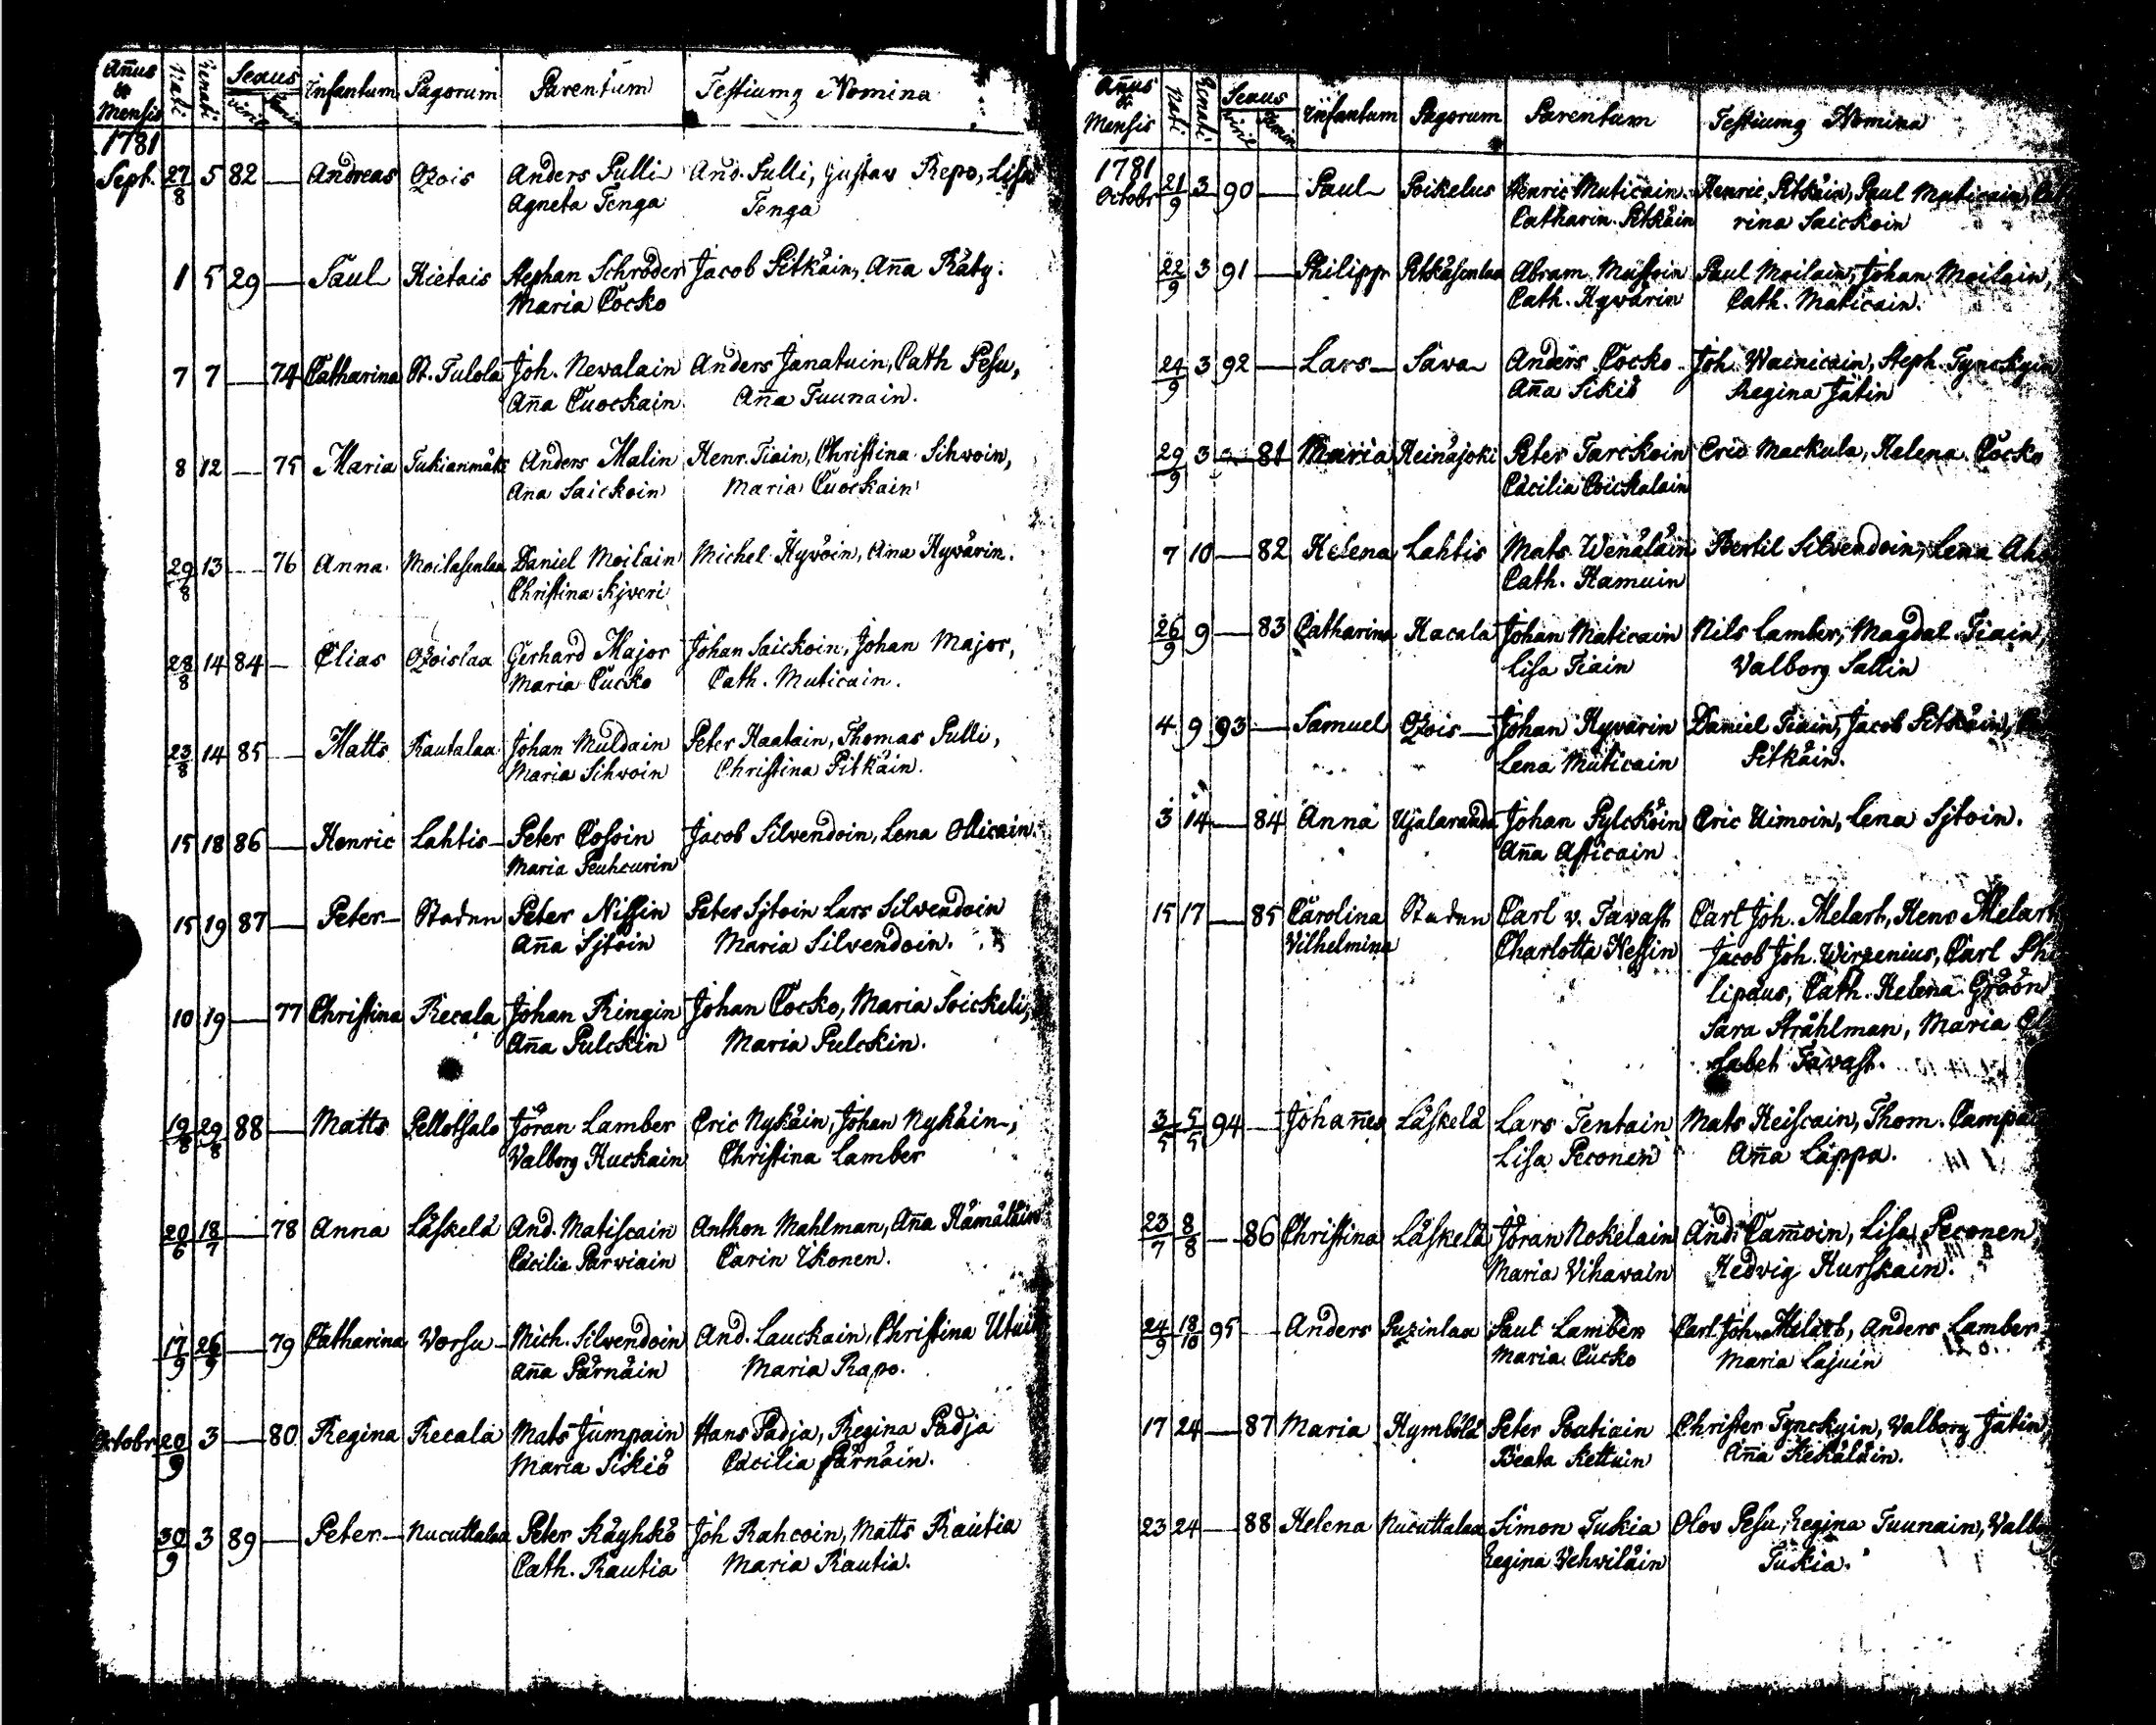 Añus & Mensis Nati. Renati. Sexus viril femin Infantum Pagorum Parentum Testiumq Nomina
1781
Sept. 27/8 5 82 — Andreas Ozois Anders Pulli And. Pulli, Gustav Repo, Lisa
Agneta Tenga Tenga
1 5 29 — Paul Hietais Stephan Schröder Jacob Pitkäin, Aña Räty.
Maria Cocko
7 7 — 74 Catharina St. Tulola Joh. Newalain Anders Janatuin, Cath Pesu,
Aña Cuockain Aña Tuunain.
8 12 — 75 Maria Tukianmäki Anders Malin Henr. Tiain, Christina Sihvoin,
Ana Saickoin Maria Cuockain
29/8 13 — 76 Anna Moilasenlax Daniel Moilain Michel Hyvöin, Ana Hyvärin.
Christina Kjveri
28/8 14 84 — Elias Ozoislaa Gerhard Major Johan Saickoin, Johan Major,
Maria Cucko Cath. Muticain.
23/8 14 85 — Matts Rautalaa Johan Muldain Peter Haatain, Thomas Pulli,
Maria Sihvoin Christina Pitkäin.
15 18 86 — Henric Lahtis Peter Cosoin Jacob Silvendoin, Lena Ollicain.
Maria Peuhcurin
15 19 87 — Peter Staden Peter Nissin Peter Sjtoin Lars Silvendoin
Aña Sjtoin Maria Silvendoin.
10 19 — 77 Christina Recala Johan Ringin Johan Cocko, Maria Soickeli,
Aña Pulckin Maria Pulckin.
19/8 29/8 88 — Matts Pellotsalo Jöran Lamber Eric Nykäin, Johan Nykäin,
Valborg Huckain Christina Lamber
20/6 18/7 — 78 Anna Läskelä And. Matiscain Anthon Mahlman, Aña Hämäläin
Cäcilia Parviain Carin Ikonen.
17/9 26/9 — 79 Catharina Vorsu Mich. Silvendoin And. Lauckain, Christina
Aña Pärnäin Maria Rapo.
Octobr 20/9 3 — 80 Regina Recala Mats Jumpain Hans Padja, Regina Padja
Maria Sikiö Cäcilia Pärnäin.
30/9 3 89 — Peter Nucuttalaa Peter Käyhkö Joh Rahcoin, Matts Rautia
Cath. Rautia Maria Rautia.
Añus & Mensis Nati Renati Sexus viril femin Infantum Pagorum Parentum Testiumq Nomina
1781
Octobr 21/9 3 90 — Paul Poikelus Henric Muticain Henric Pitkäin, Paul Muticain,
Catharin. Pitkäin rina Saickoin
22/9 3 91 — Philipp Pitkäsenlaa Abram Mustoin Paul Moilain, Johan Moilain,
Cath. Hyvärin Cath. Maticain.
24/9 3 92 — Lars Sava Anders Cocko Joh. Wainicain, Steph. Tynckyin
Aña Sikiö Regina Jatin
29/9 3 — 81 Maria Heinäjoki Peter Tarckoin Eric Mackula, Helena Cocko
Cäcilia Coickalain
7 10 — 82 Helena Lahtis Mats Wenäläin Bertil Silvendoin, Lena
Cath. Hamuin
26/9 9 — 83 Catharina Hacala Johan Maticain Nils Lamber, Magdal. Tiain,
Lisa Tiain Valborg Sallin
4 9 93 — Samuel Ozois Johan Hyvärin Daniel Tiain, Jacob Pitkäin,
Lena Muticain Pitkäin.
3 14 — 84 Anna Ujalaranda Johan Pylcköin Eric Uimoin, Lena Sjtoin.
Aña Asticain
15 17 — 85 Carolina Staden Carl v. Tavast Carl Joh. Melart, Henr Melart
Vilhelmina Charlotta Nessin Jacob Joh. Wirzenius, Carl Phi
lipäus, Cath. Helena Gröön
Sara Strählman, Maria El
sabet Tavast.
3/5 5/5 94 — Johañes Läskelä Lars Tentain Mats Heiscain, Thom.
Lisa Peconen Aña Lappa.
23/7 8/8 — 86 Christina Läskelä Jöran Nokelain And. Cam̄oin, Lisa Peconen
Maria Vihavain Hedvig Hurskain.
24/9 18/10 95 — Anders Puzinlaa Paul Lamber Carl Joh. Melart, Anders Lamber
Maria Cucko Maria Lajuin
17 24 — 87 Maria Hymbölä Peter Ratiain Christer Tynckyin, Valborg Jatin,
Beata Kettuin Aña Kekäläin.
23 24 — 88 Helena Nucuttalaa Simon Tukia Olov Pesu, Regina Tuunain, Valbo
Regina Vehviläin Tukia.